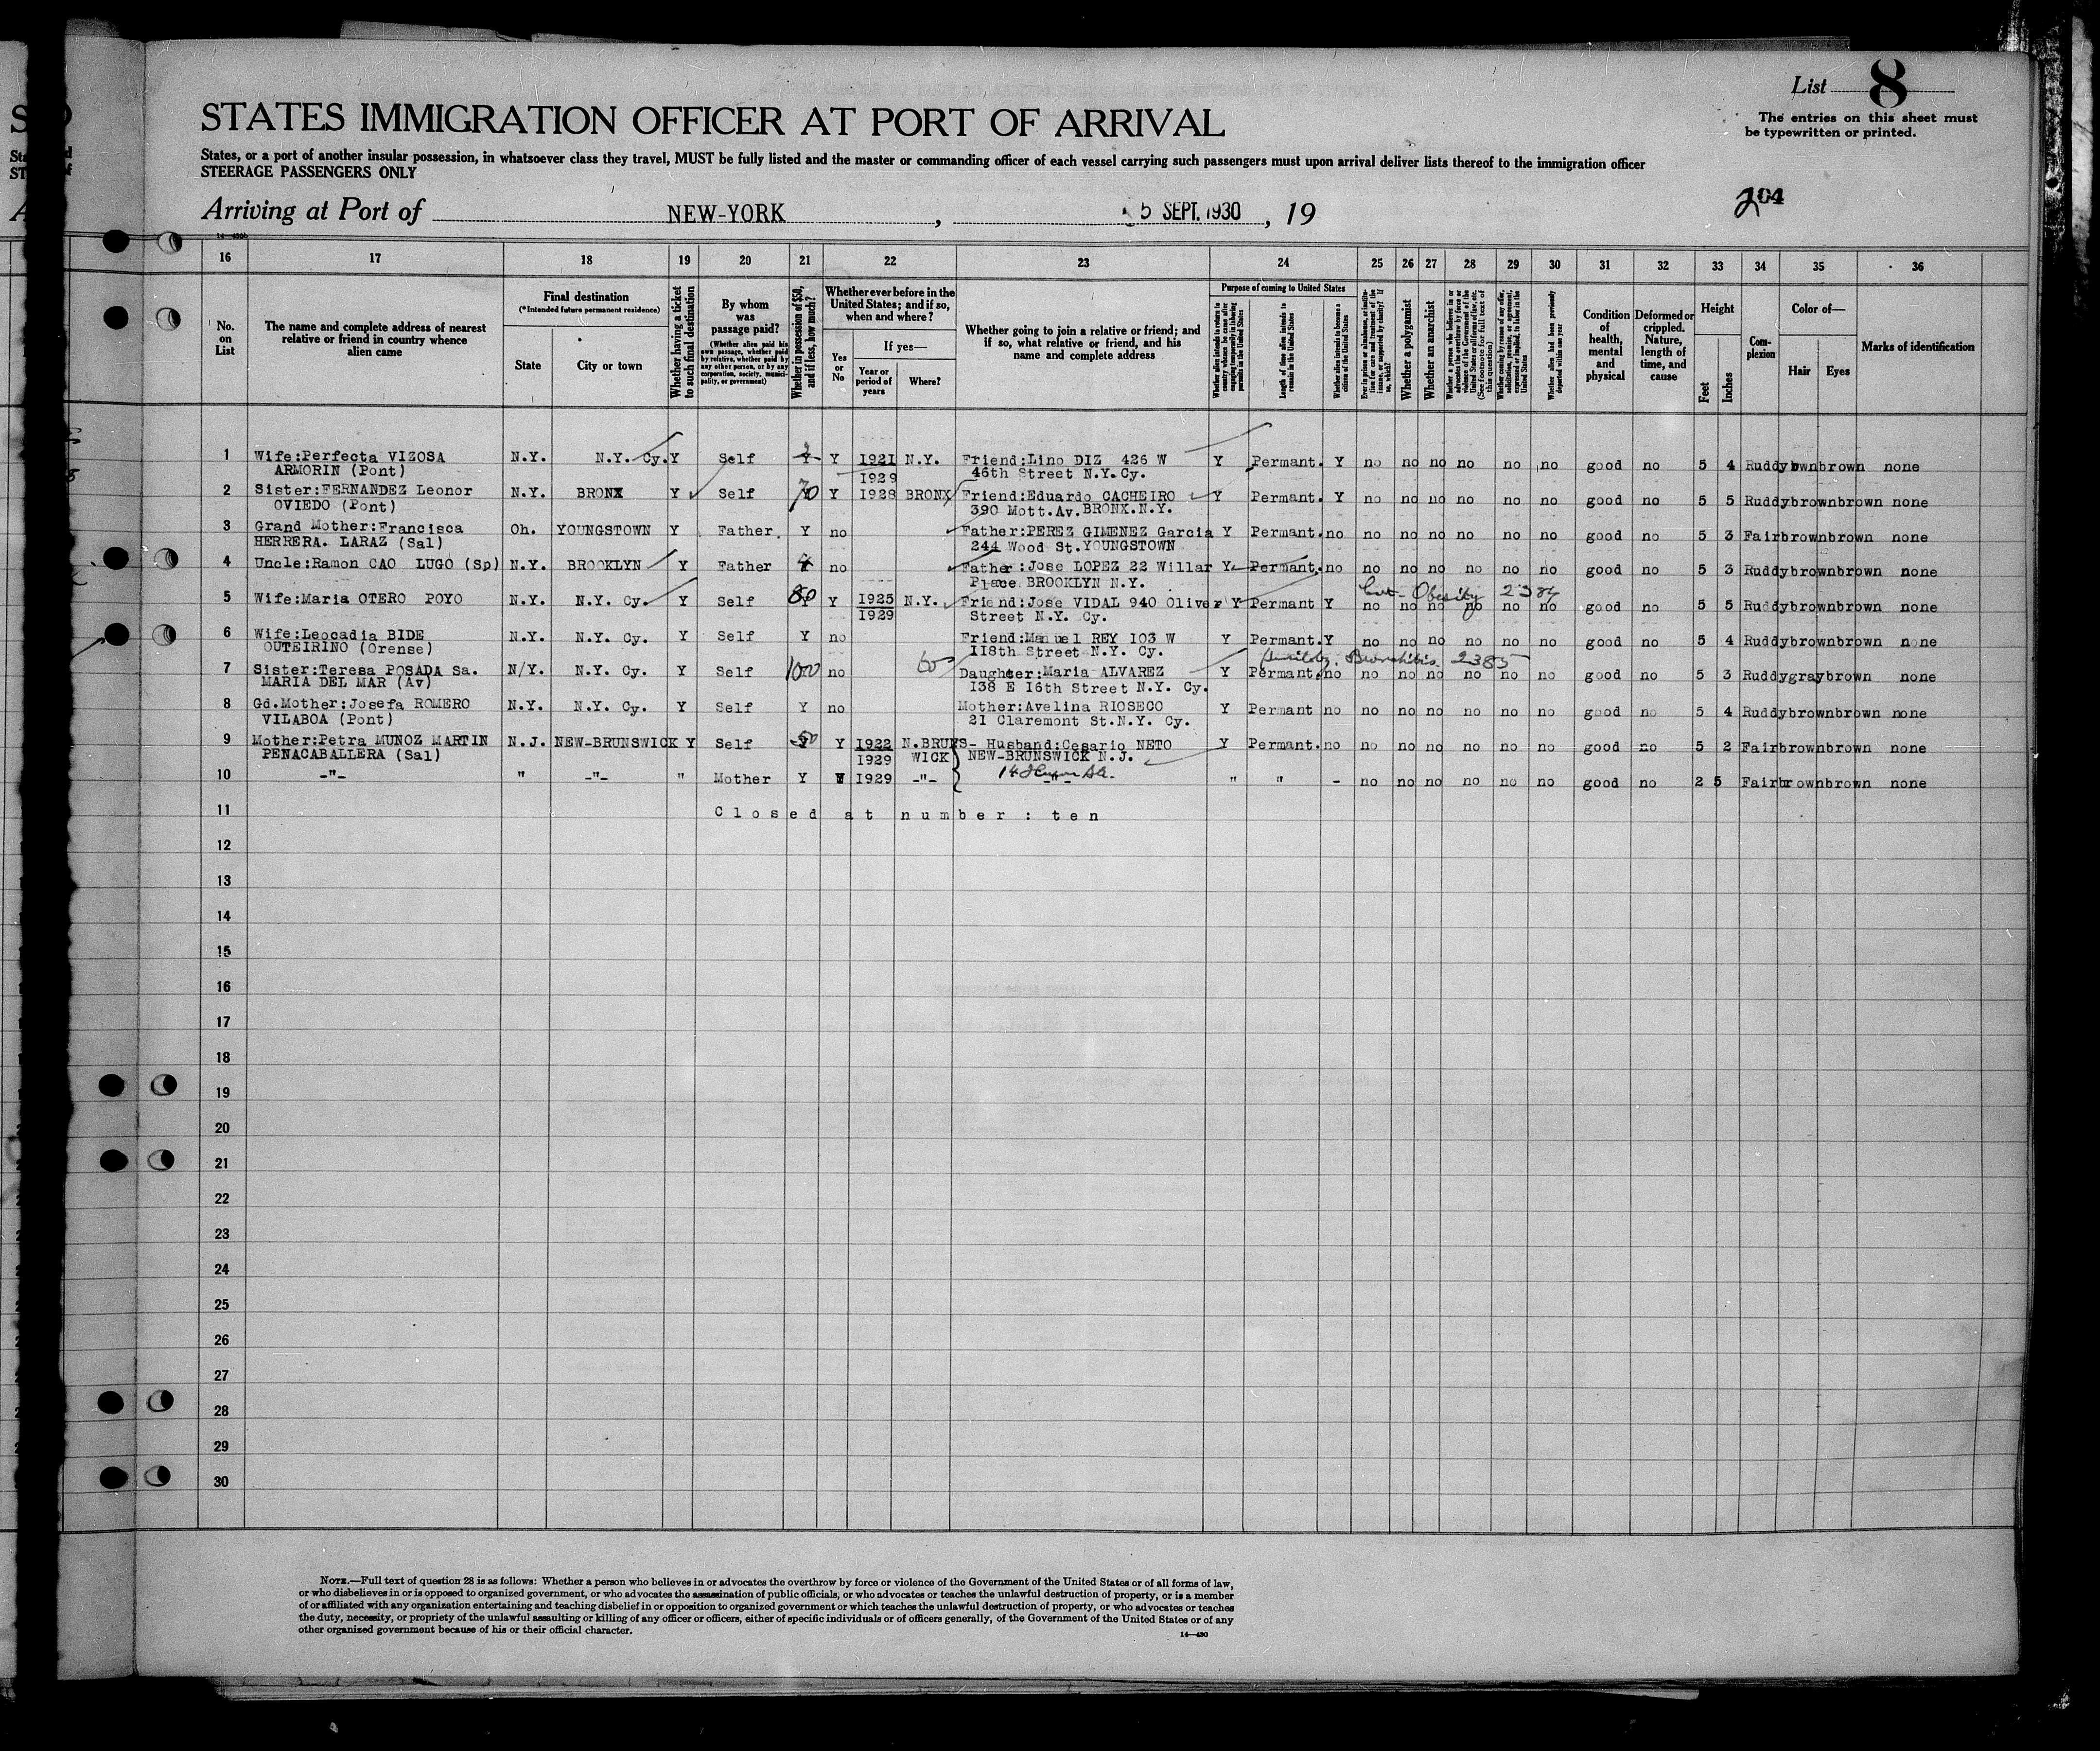 List 8
The entries on this sheet must
be typewritten or printed.
STATES IMMIGRATION OFFICER AT PORT OF ARRIVAL
States, or a port of another insular possession, in whatsoever class they travel, MUST be fully listed and the master or commanding officer of each vessel carrying such passengers must upon arrival deliver lists thereof to the immigration officer
STEERAGE PASSENGERS ONLY
Arriving at Port of NEW-YORK, 5 SEPT. 1930, 19
204
16 17 18 19 20 21 22 23 24 25 26 27 28 29 30 31 32 33 34 35 36
No. on List
The name and complete address of nearest relative or friend in country whence alien came
Final destination
(*Intended future permanent residence)
State
City or town
Whether having a ticket to such final destination
By whom was passage paid?
(Whether alien paid his own passage, whether paid by relative, whether paid by any other person, or by any corporation, society, municipality, or government)
Whether in possession of $50, and if less, how much?
Whether ever before in the United States; and if so, when and where?
Yes or No
If yes—
Year or period of years
Where?
Whether going to join a relative or friend; and if so, what relative or friend, and his name and complete address
Purpose of coming to United States
Whether alien intends to return to country whence he came after engaging temporarily in laboring pursuits in the United States
Length of time alien intends to remain in the United States
Whether alien intends to become a citizen of the United States
Ever in prison or almshouse, or institution for care and treatment of the insane, or supported by charity? If so, which?
Whether a polygamist
Whether an anarchist
Whether a person who believes in or advocates the overthrow by force or violence of the Government of the United States or all forms of law, etc. (See footnote for full text of this question)
Whether coming by reason of any offer, solicitation, promise, or agreement, expressed or implied, to labor in the United States
Whether alien had been previously deported within one year
Condition of health, mental and physical
Deformed or crippled. Nature, length of time, and cause
Height
Feet
Inches
Complexion
Color of—
Hair
Eyes
Marks of identification
1 Wife:Perfecta VIZOSA N.Y. N.Y. Cy. Y Self Y Y 1921 N.Y. Friend:Lino DIZ 426 W Y Permant. Y no no no no no no good no 5 4 Ruddy bwnbrown none
ARMORIN (Pont) 1929 46th Street N.Y.Cy.
2 Sister:FERNANDEZ Leonor N.Y. BRONX Y Self 70 Y 1928 BRONX Friend:Eduardo CACHEIRO Y Permant. Y no no no no no no good no 5 5 Ruddybrownbrown none
OVIEDO (Pont) 390 Mott.Av.BRONX.N.Y.
3 Grand Mother:Francisca Oh. YOUNGSTOWN Y Father. Y no Father:PEREZ GIMENEZ Garcia Y Permant.no no no no no no no good no 5 3 Fairbrownbrown none
HERRERA. LARAZ (Sal) 244 Wood St.YOUNGSTOWN
4 Uncle:Ramon CAO LUGO (Sp) N.Y. BROOKLYN Y Father no Father:Jose LOPEZ 22 Willar Y Permant.no no no no no no no good no 5 3 Ruddybrownbrown none
Place BROOKLYN N.Y.
Obesity 2384
5 Wife:Maria OTERO POYO N.Y. N.Y. Cy. Y Self 80 Y 1925 N.Y. Friend:Jose VIDAL 940 Oliver Y Permant Y no no no no no no good no 5 5 Ruddybrownbrown none
1929 Street N.Y. Cy.
6 Wife:Leocadia BIDE N.Y. N.Y. Cy. Y Self Y no Friend:Manuel REY 103 W Y Permant.Y no no no no no no good no 5 4 Ruddybrownbrown none
OUTEIRINO (Orense) 118th Street N.Y. Cy.
Senility. Bronchitis. 2385
7 Sister:Teresa POSADA Sa. N/Y. N.Y. Cy. Y Self 1000 no Daughter:Maria ALVAREZ Y Permant.no no no no no no no good no 5 3 Ruddygraybrown none
MARIA DEL MAR (Av) 138 E 16th Street N.Y. Cy.
8 Gd.Mother:Josefa ROMERO N.Y. N.Y. Cy. Y Self Y no Mother:Avelina RIOSECO Y Permant no no no no no no no good no 5 4 Ruddybrownbrown none
VILABOA (Pont) 21 Claremont St.N.Y. Cy.
9 Mother:Petra MUNOZ MARTIN N.J. NEW-BRUNSWICK Y Self 50 Y 1922 N.BRUNS- Husband:Cesario NETO Y Permant.no no no no no no no good no 5 2 Fairbrownbrown none
PENACABALLERA (Sal) 1929 WICK NEW-BRUNSWICK N.J.
10 -"- " -"- " Mother Y Y 1929 -"- -"- " " - no no no no no no good no 2 5 Fairbrownbrown none
11 Closed at number : ten
12
13
14
15
16
17
18
19
20
21
22
23
24
25
26
27
28
29
30
NOTE.—Full text of question 28 is as follows: Whether a person who believes in or advocates the overthrow by force or violence of the Government of the United States or of all forms of law,
or who disbelieves in or is opposed to organized government, or who advocates the assassination of public officials, or who advocates or teaches the unlawful destruction of property, or is a member
of or affiliated with any organization entertaining and teaching disbelief in or opposition to organized government or which teaches the unlawful destruction of property, or who advocates or teaches
the duty, necessity, or propriety of the unlawful assaulting or killing of any officer or officers, either of specific individuals or of officers generally, of the Government of the United States or of any
other organized government because of his or their official character.
14—490